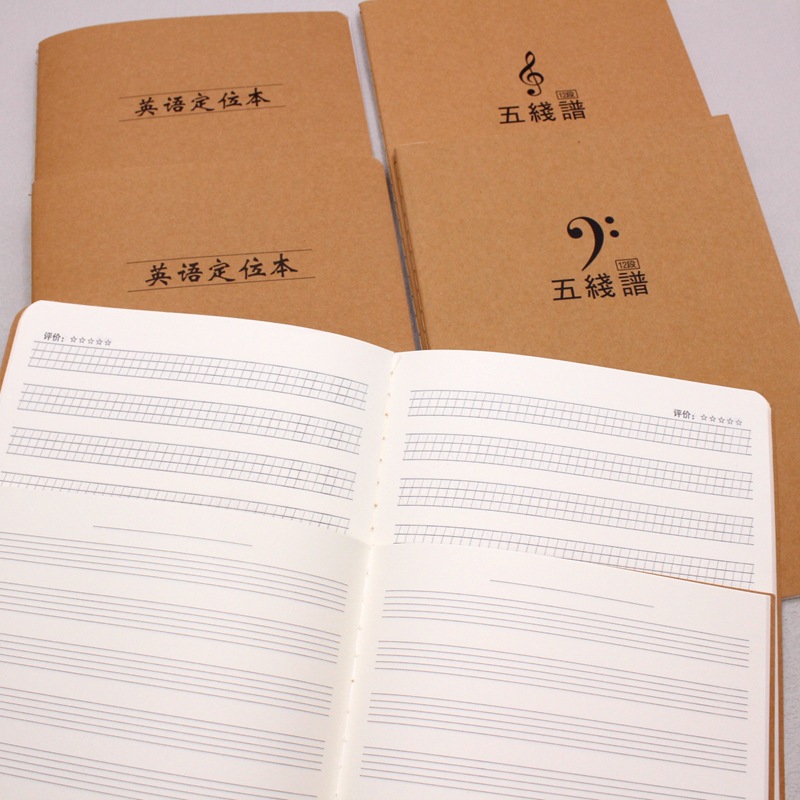 英语定位本
12段
五綫譜
英语定位本
12段
五綫譜
评价：☆☆☆☆☆
评价：☆☆☆☆☆